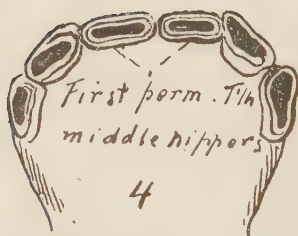 First perm. T'h
middle nippers
4